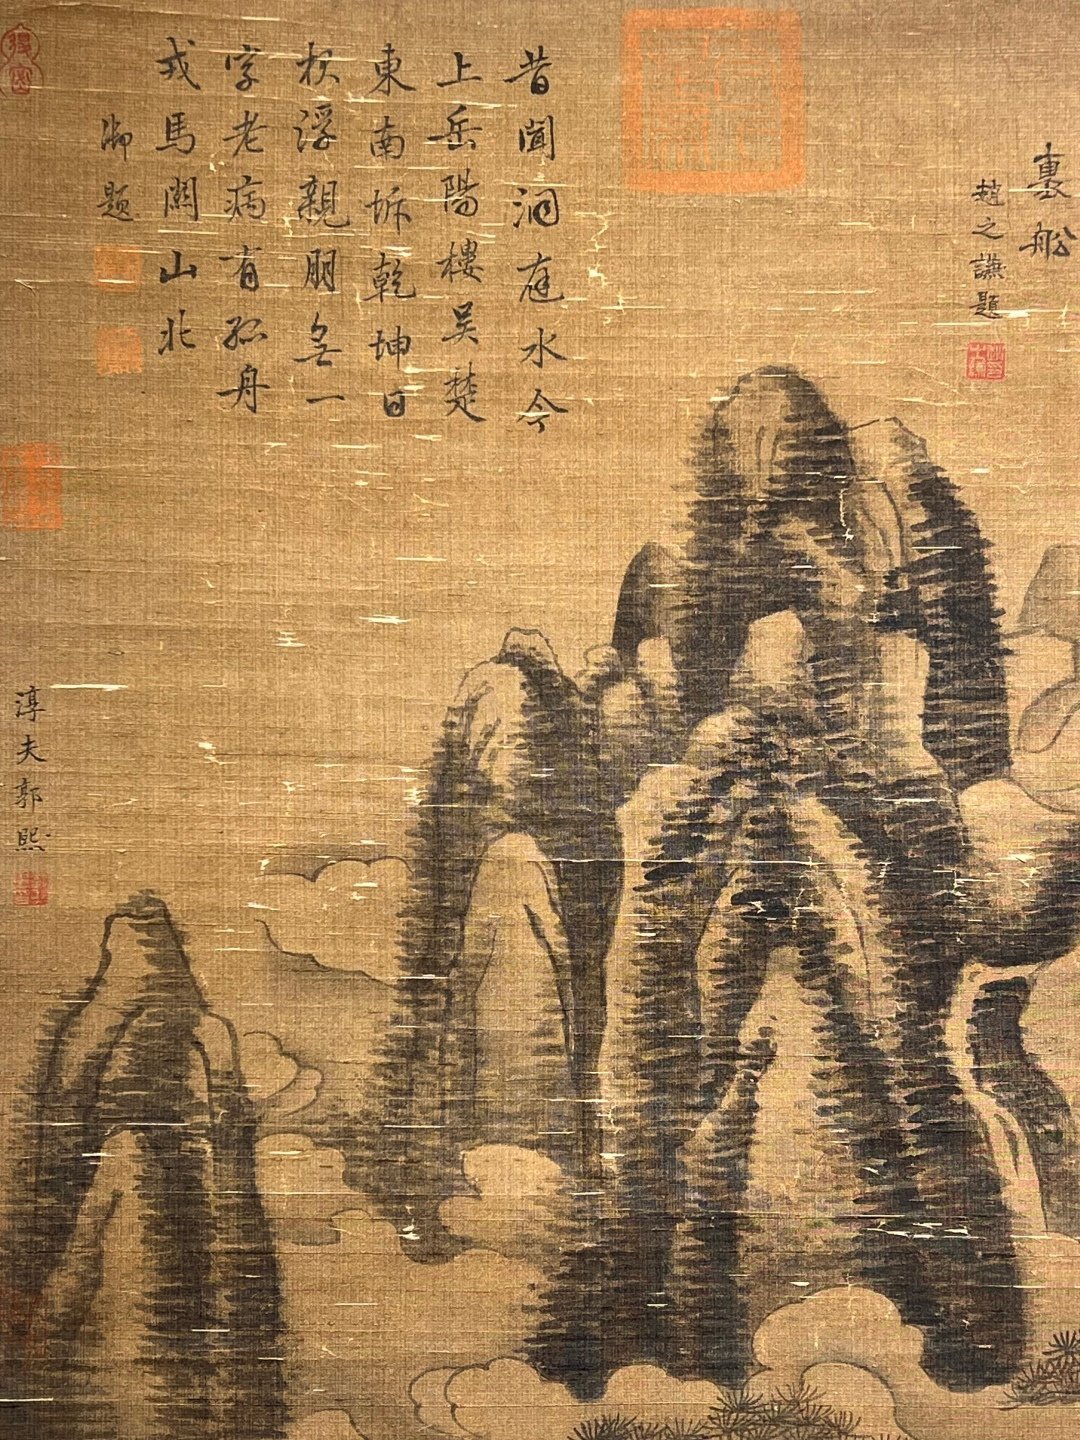 裏舩
趙之謙題
昔聞洞庭水今
上岳陽樓吳楚
東南坼乾坤日
夜浮親朋無一
字老病有孤舟
戎馬關山北
御題
淳夫郭熙